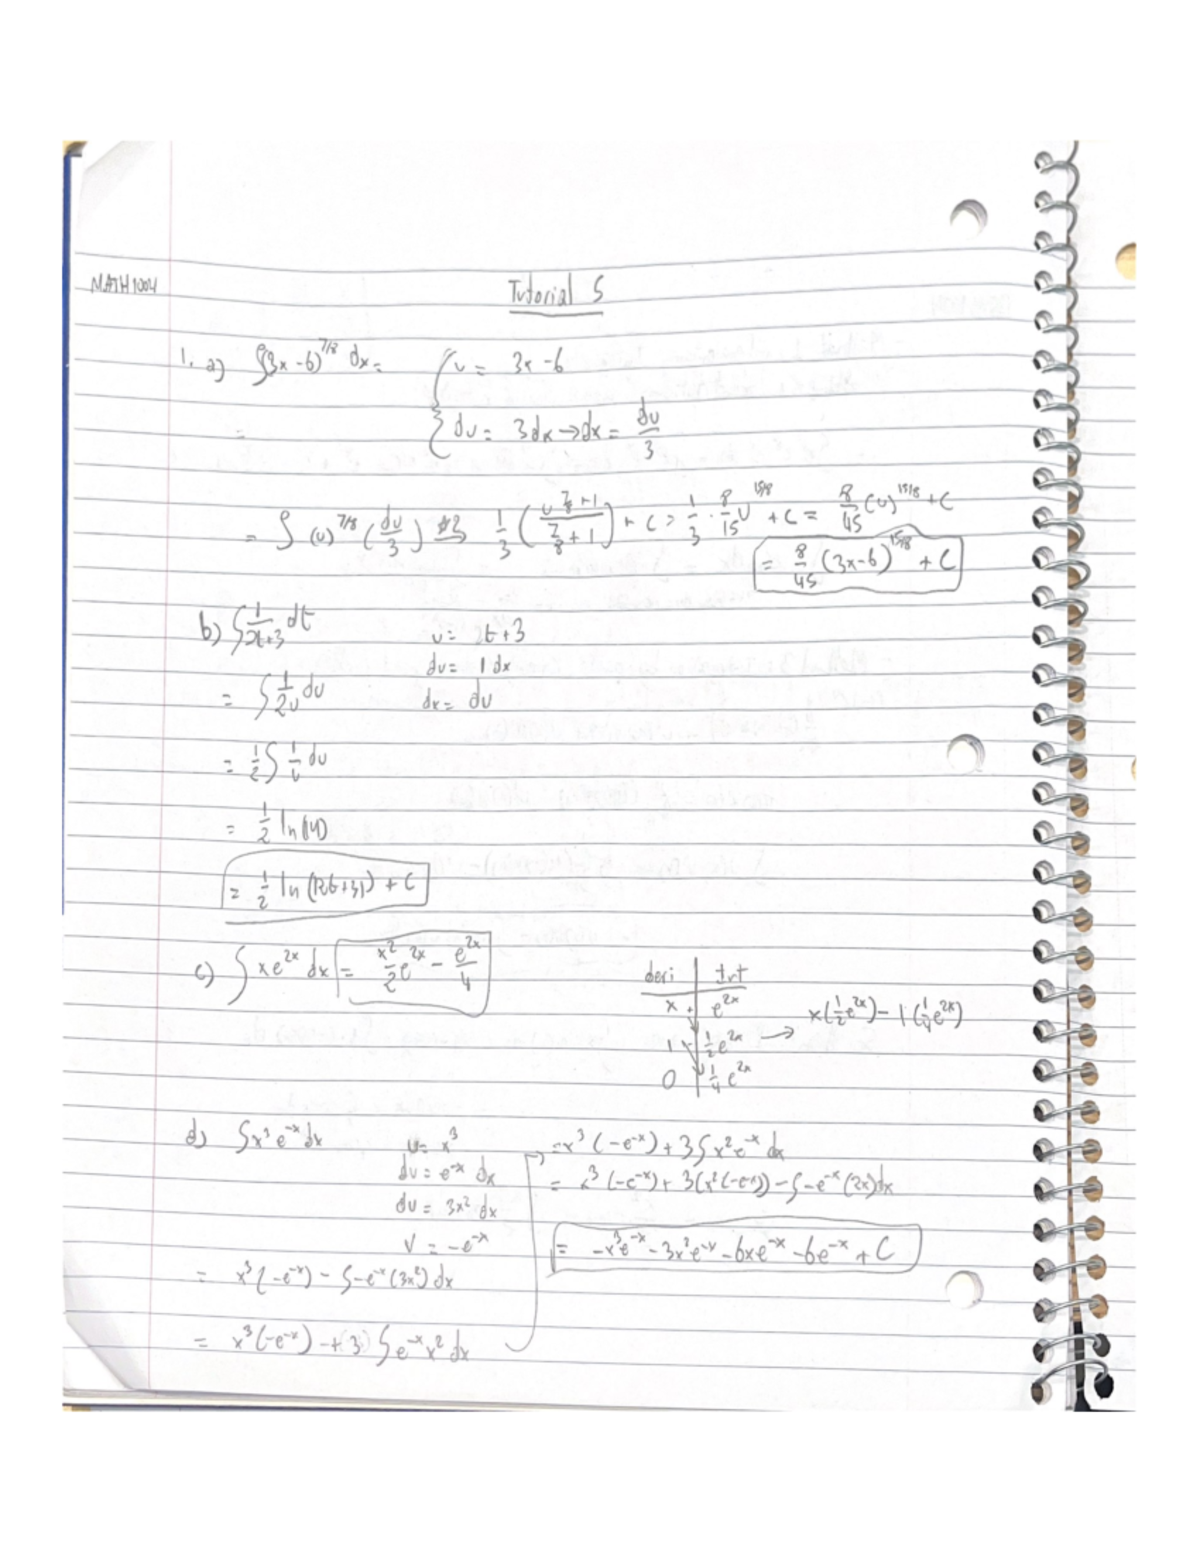 MATH1004
Tutorial 5
1. a) ∫(3x-6)^7/8 dx =
{ u = 3x-6
{ du = 3dx → dx = du/3
= ∫ (u)^7/8 (du/3) 1/3 (u^(7/8+1) / (7/8+1)) + C = 1/3 · 8/15 u^15/8 + C = 8/45 (u)^15/8 + C
= 8/45 (3x-6)^15/8 + C
b) ∫ 1/(2t+3) dt
u = 2t+3
du = 1 dx
dx = du
= ∫ 1/(2u) du
= 1/2 ∫ 1/u du
= 1/2 ln(|u|)
= 1/2 ln(|2t+3|) + C
c) ∫ xe^2x dx = x^2/2 e^2x - e^2x/4
deri | Int
x | e^2x
1 | 1/2 e^2x → x(1/2 e^2x) - 1(1/4 e^2x)
0 | 1/4 e^2x
d) ∫x^3 e^-x dx
u = x^3
du = e^-x dx
du = 3x^2 dx
v = -e^-x
= x^3(-e^-x) - ∫-e^-x(3x^2) dx
= x^3(-e^-x) + 3 ∫e^-x x^2 dx
= x^3(-e^-x) + 3∫x^2 e^-x dx
= x^3(-e^-x) + 3(x^2(-e^-x)) - ∫-e^-x(2x)dx
= -x^3e^-x - 3x^2e^-x - 6xe^-x - 6e^-x + C